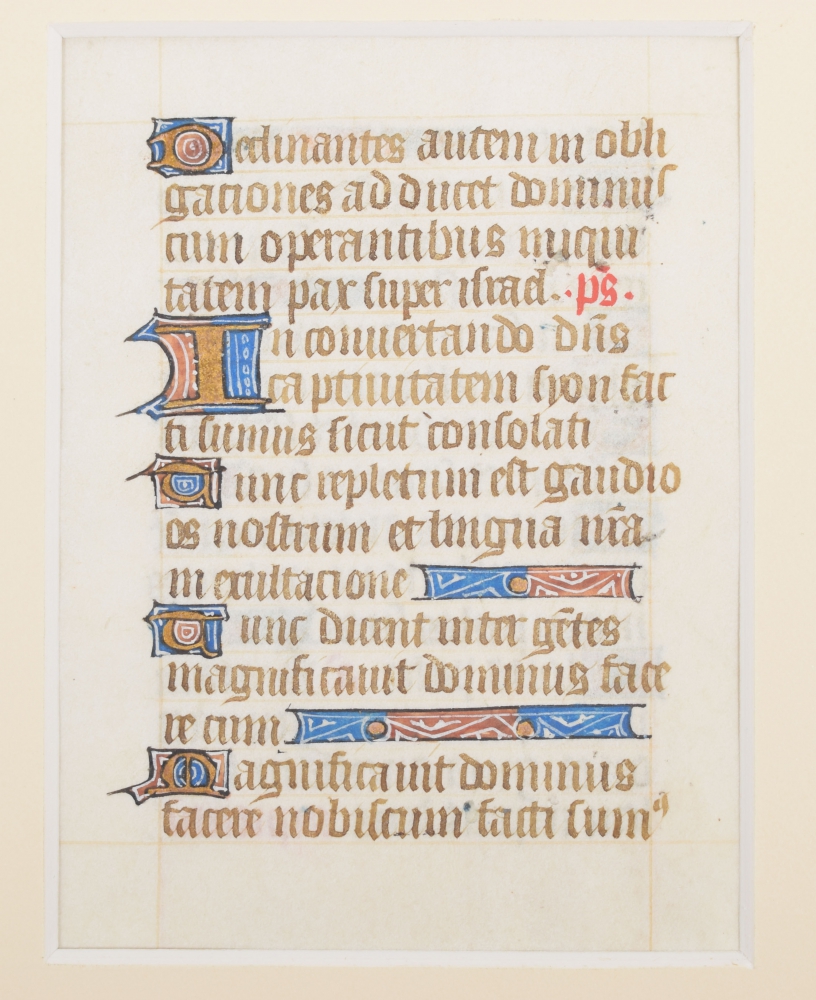 Declinantes autem in obli
gaciones adducet dominus
cum operantibus iniqui
tatem pax super israel. ·ps̄·
In conuertando dn̄s
captiuitatem syon fac
ti sumus sicut consolati
Tunc repletum est gaudio
os nostrum et lingua nr̄a
in exultacione
Tunc dicent inter gētes
magnificauit dominus face
re cum
Magnificauit dominus
facere nobiscum facti sumꝰ